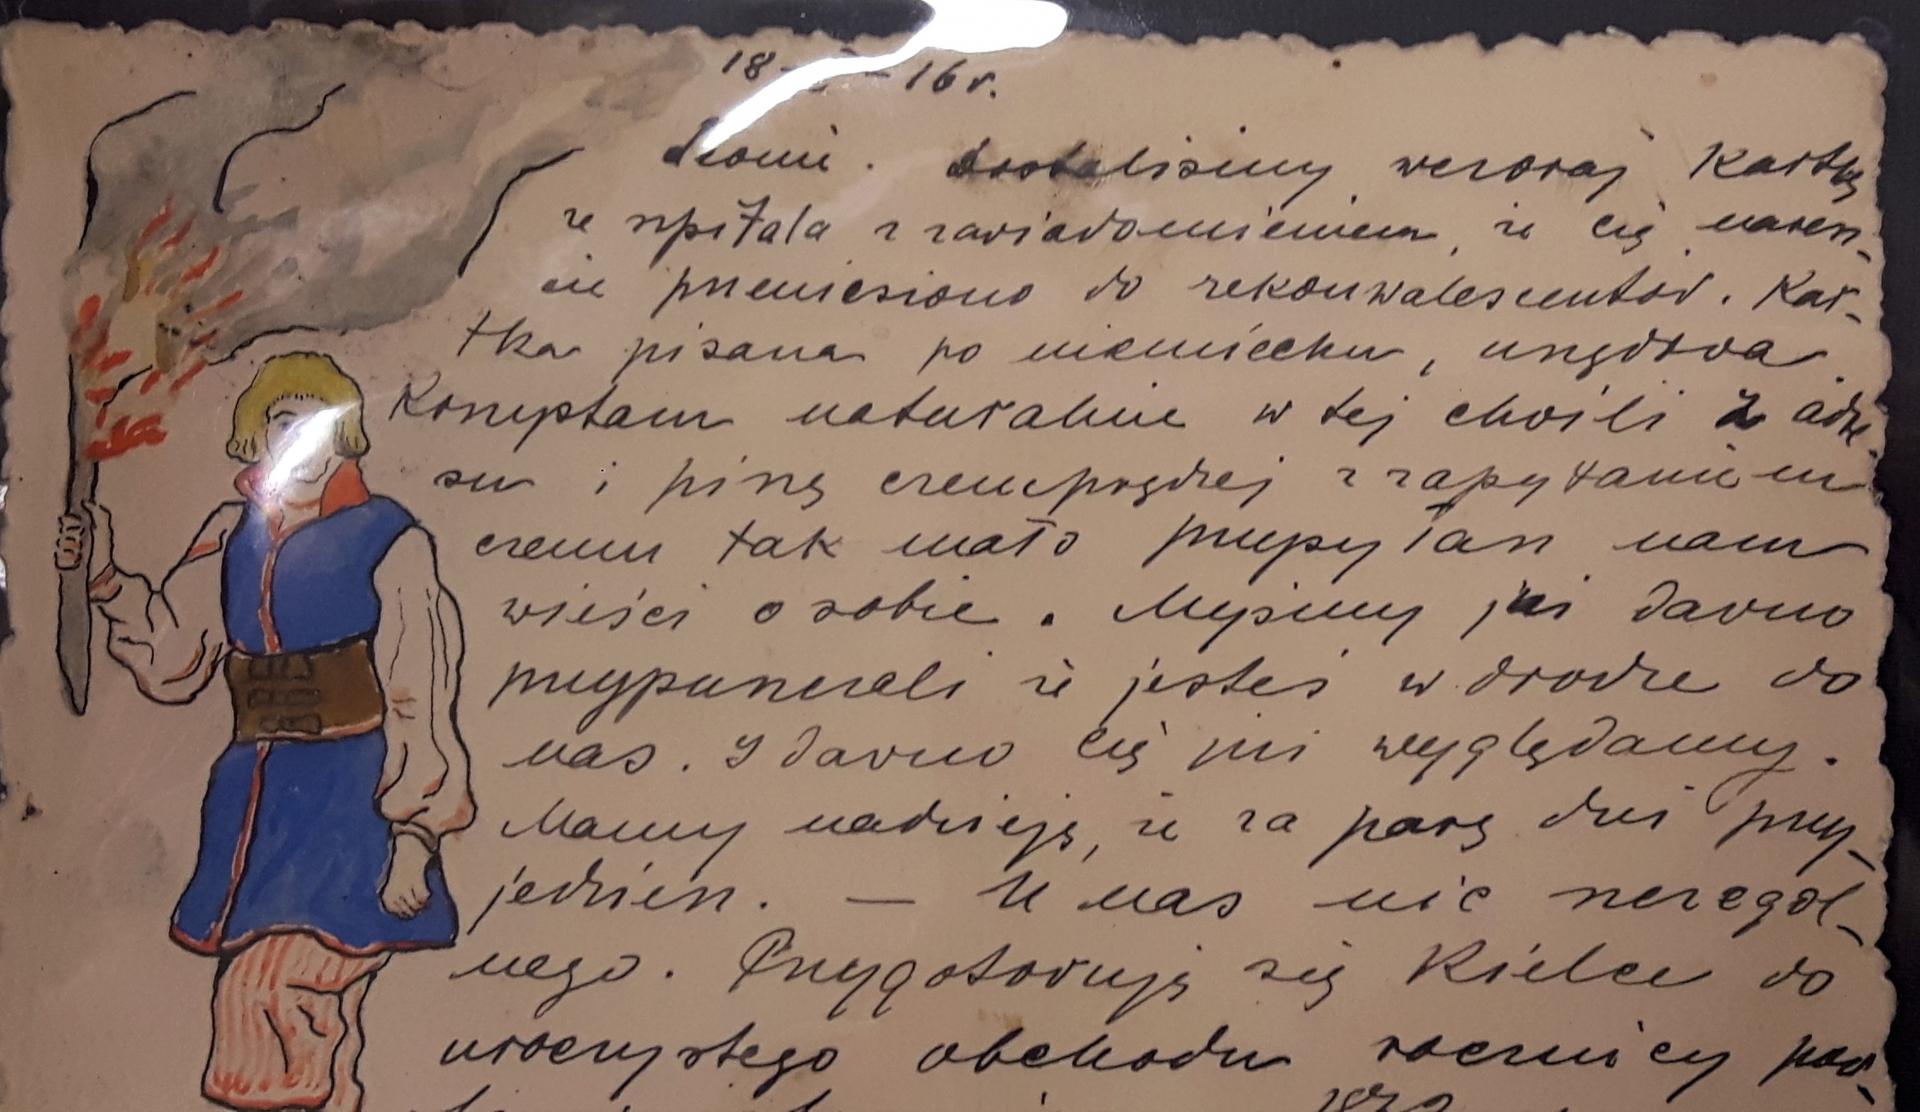 18- -16 r.
Lloniu. Dostaliśmy wczoraj kartkę
ze szpitala z zawiadomieniem, że cię naresz-
cie przeniesiono do rekonwalescentów. Kar-
tka pisana po niemiecku, urzędowa.
Korzystam naturalnie w tej chwili z adre
su i piszę czemprędzej z zapytaniem
czemu tak mało przysyłasz nam
wieści o sobie. Myśmy już dawno
przypuszczali że jesteś w drodze do
nas. I dawno cię już wyglądamy.
Mamy nadzieję, że za parę dni przy-
jedziesz. — U nas nic szczegól-
nego. Przygotowują się Kielce do
uroczystego obchodu rocznicy pow-